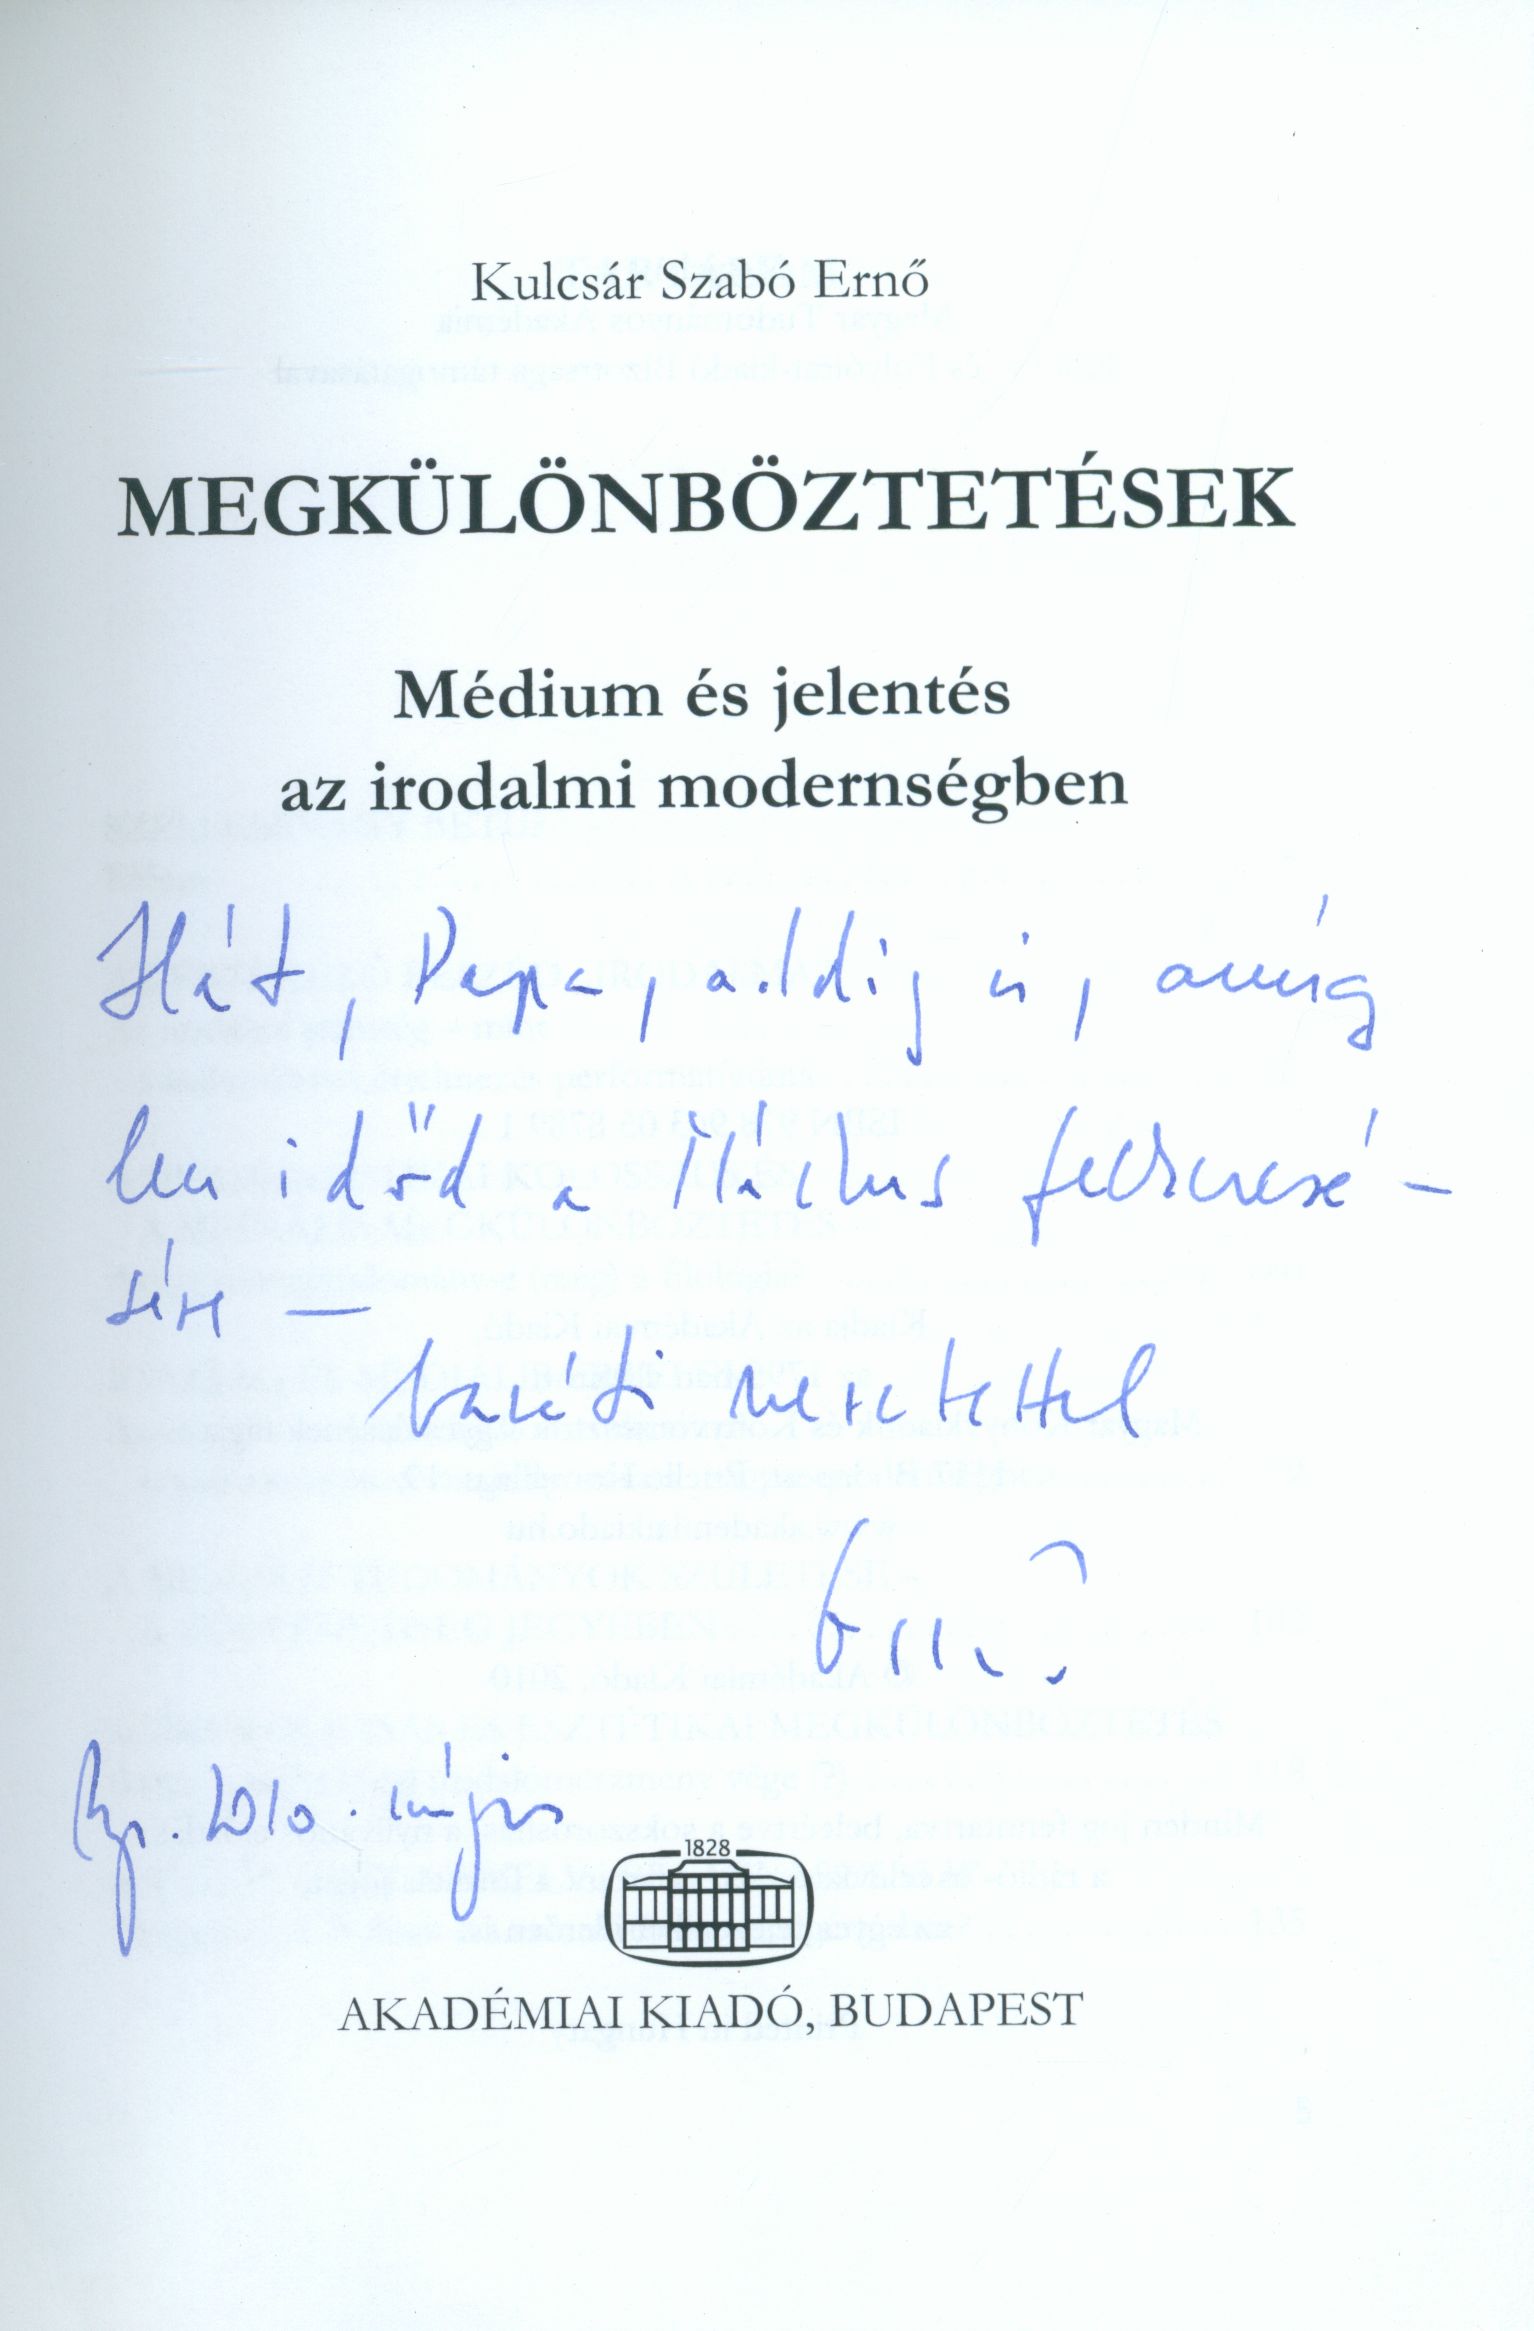 Kulcsár Szabó Ernő
MEGKÜLÖNBÖZTETÉSEK
Médium és jelentés
az irodalmi modernségben
Hát, Papa, addig is, amíg
lesz időd a
sére —
baráti szeretettel
Ernő
Bp. 2010. május
1828
AKADÉMIAI KIADÓ, BUDAPEST